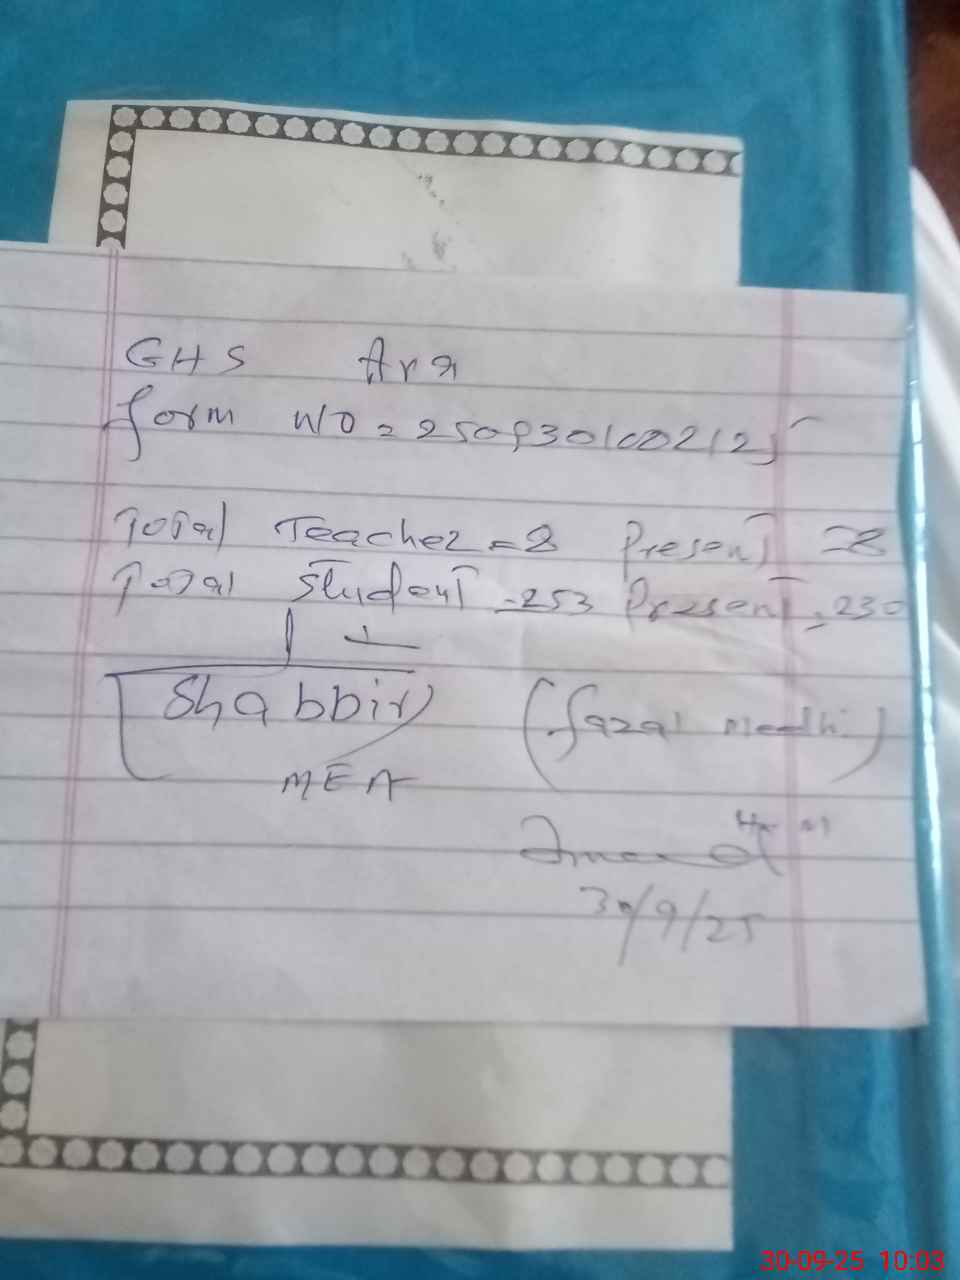 GHS Ara
form NO = 2509301002125
Total Teacher = 8 Present = 8
Total Student = 253 Present = 230
Shabbir (fazal Medhi)
MEA
30/9/25
30-09-25 10:03